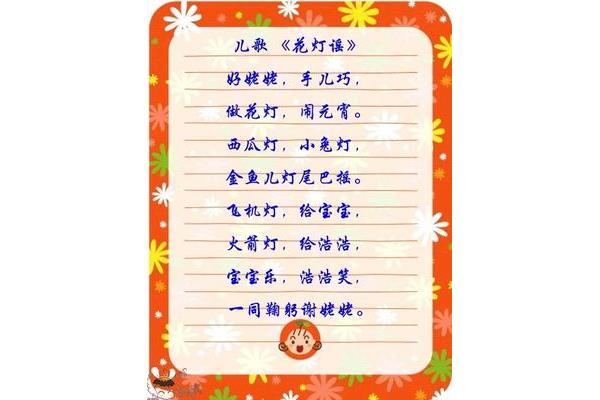 儿歌《花灯谣》
好姥姥，手儿巧，
做花灯，闹元宵。
西瓜灯，小兔灯，
金鱼儿灯尾巴摇。
飞机灯，给宝宝，
火箭灯，给浩浩，
宝宝乐，浩浩笑，
一同鞠躬谢姥姥。